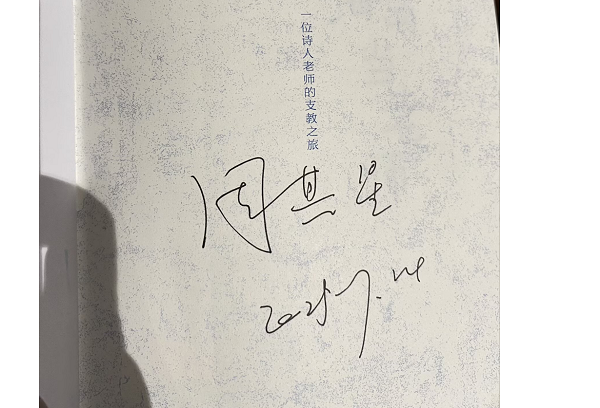 一位诗人老师的支教之旅
周其星
2025.7.24